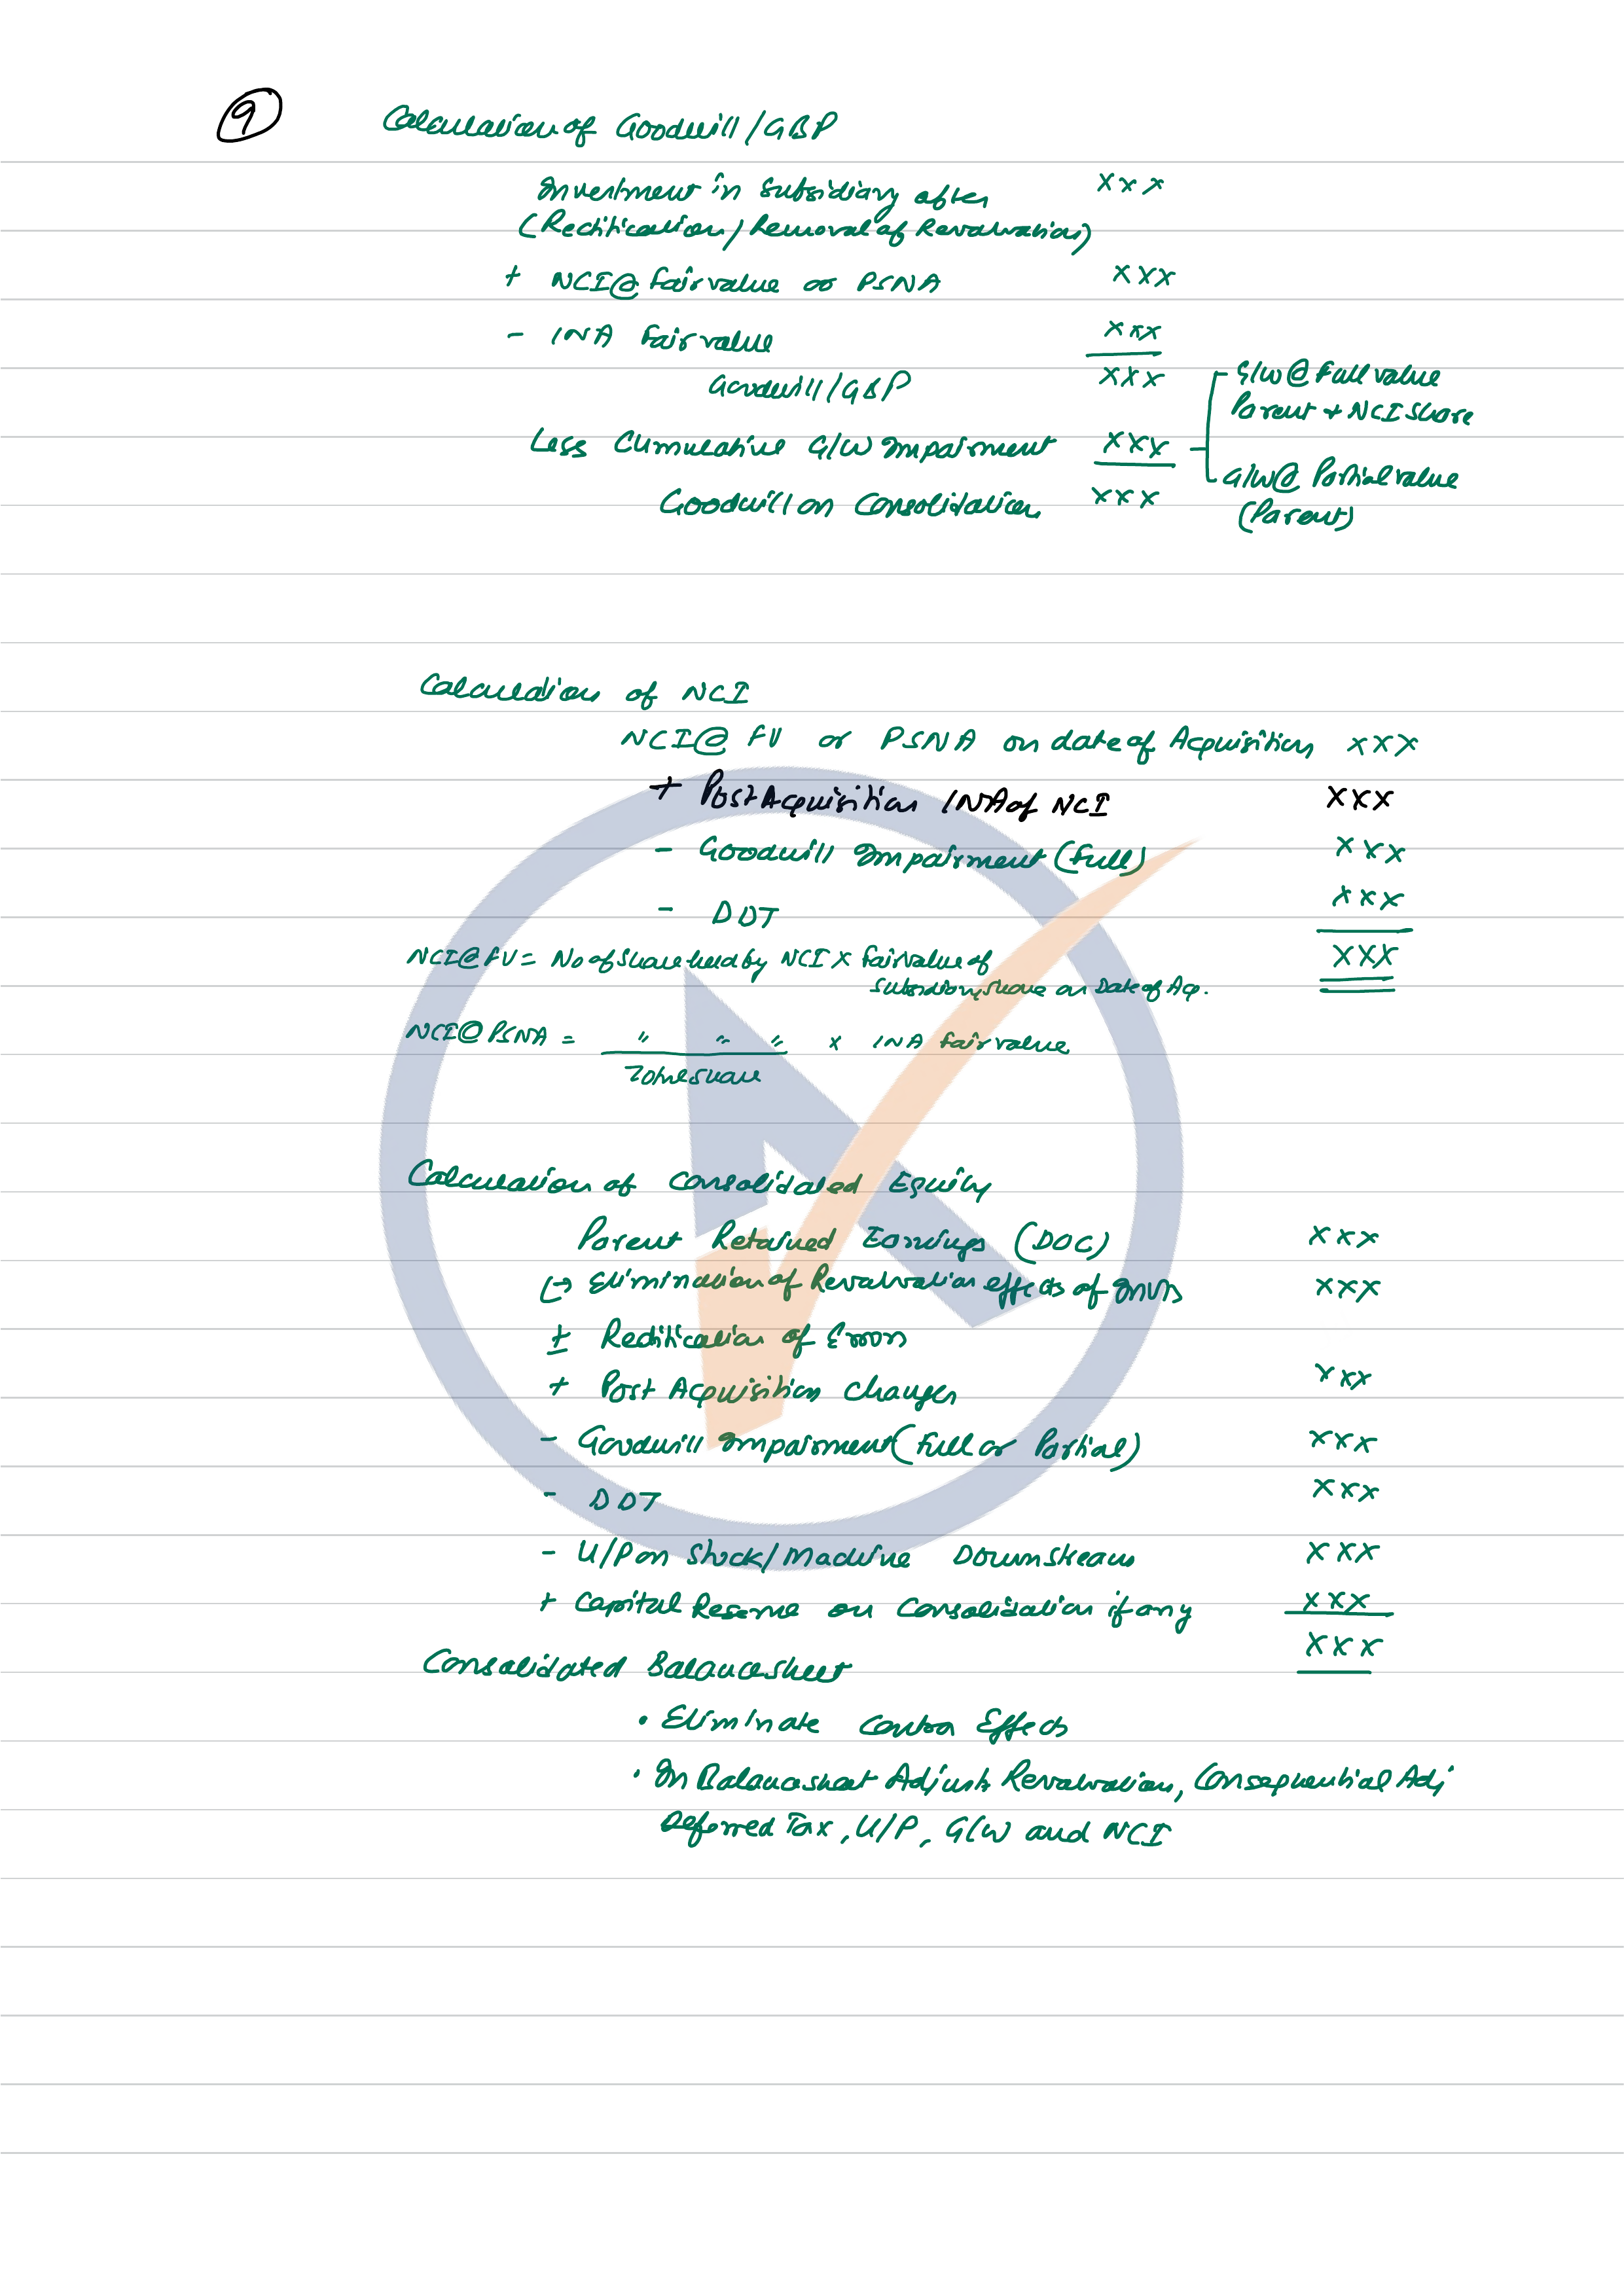 9
Calculation of Goodwill/GBP
Investment in Subsidiary after xxx
(Rectification/Removal of Revaluation)
+ NCI@ fair value or PSNA xxx
- INA fair value xxx
Goodwill/GBP xxx
G/W@ Full value
Parent + NCI Share
Less Cumulative G/W Impairment xxx
G/W@ Partial value
(Parent)
Goodwill on Consolidation xxx
Calculation of NCI
NCI@ FV or PSNA on date of Acquisition xxx
+ Post Acquisition INA of NCI xxx
- Goodwill Impairment (Full) xxx
- DDT xxx
NCI@ FV = No of Share held by NCI x fair value of xxx
Subsidiary share on Date of Acq.
NCI@ PSNA = " " " x INA fair value
Total share
Calculation of Consolidated Equity
Parent Retained Earnings (DOC) xxx
(-) Elimination of Revaluation effects of Invts xxx
± Rectification of Errors
+ Post Acquisition Changes xxx
- Goodwill Impairment (Full or Partial) xxx
- DDT xxx
- U/P on Stock/Machine Downstream xxx
+ Capital Reserve on Consolidation if any xxx
xxx
Consolidated Balancesheet
• Eliminate Contra Effects
• In Balancesheet Adjust Revaluation, Consequential Adj
Deferred Tax, U/P, G/W and NCI